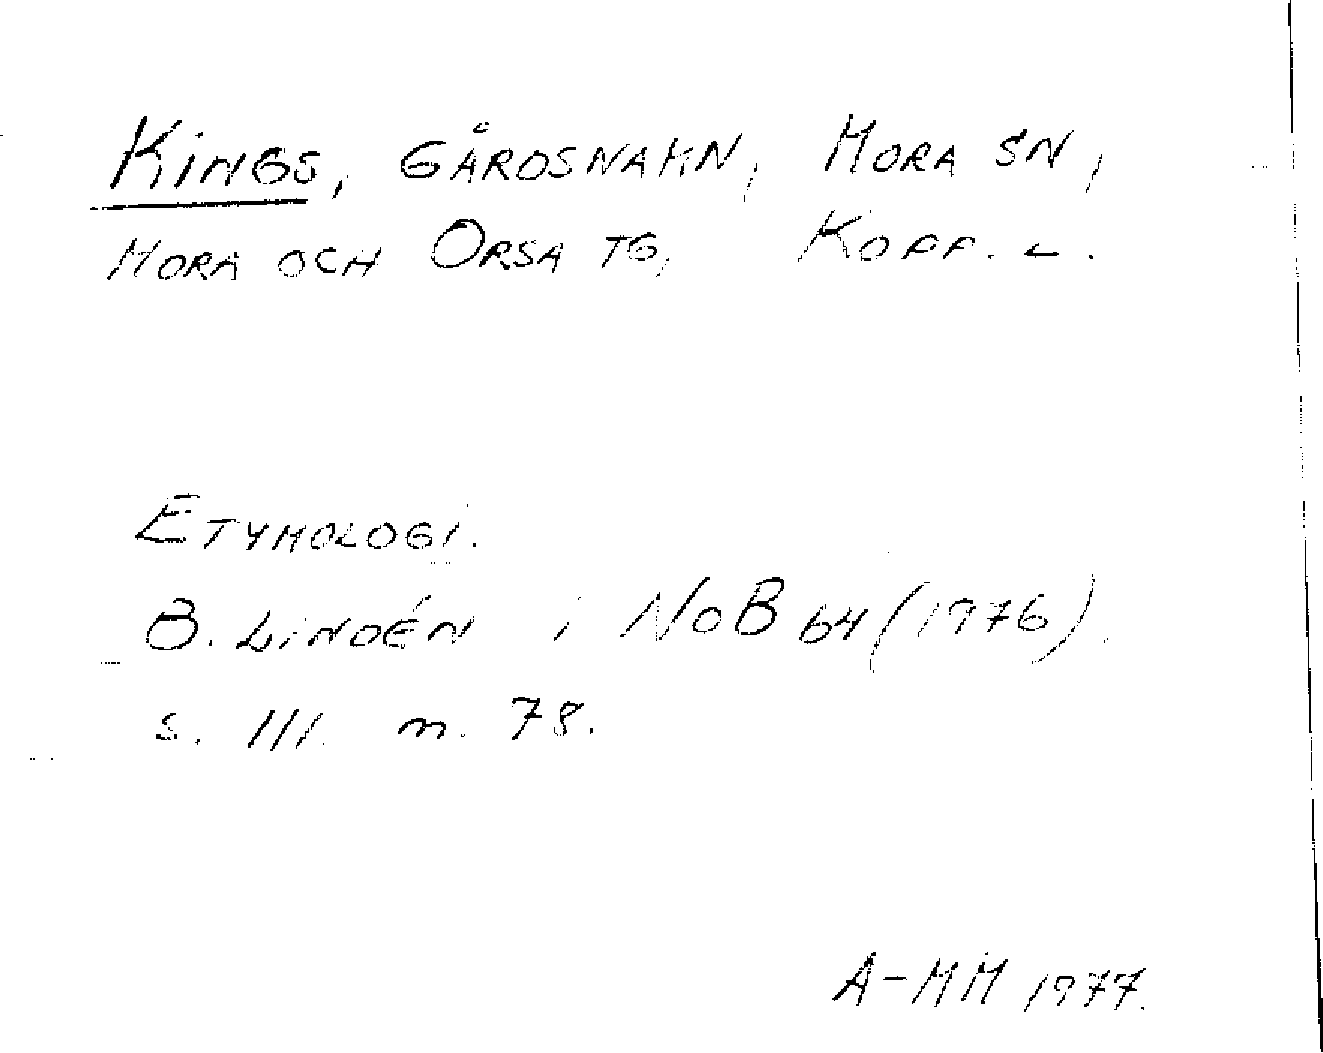 Kings, gårdsnamn, Mora sn,
Mora och Orsa tg, Kopp. L.
Etymologi.
B. Lindén i NoB 64 (1976).
s. 111. n. 78.
A-MM 1977.